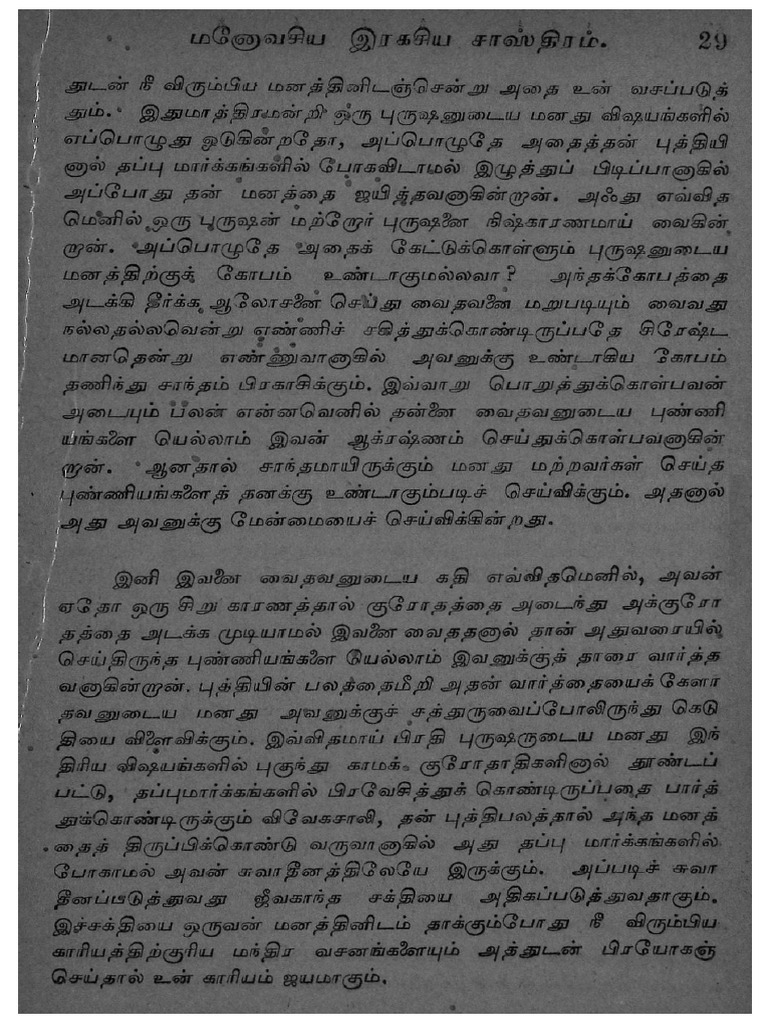 மனோவசிய இரகசிய சாஸ்திரம். 29
துடன் நீ விரும்பிய மனத்தினிடஞ்சென்று அதை உன் வசப்படுத்
தும். இதுமாத்திரமன்றி ஒரு புருஷனுடைய மனது விஷயங்களில்
எப்பொழுது ஓடுகின்றதோ, அப்பொழுதே அதைத்தன் புத்தியி
னால் தப்பு மார்க்கங்களில் போகவிடாமல் இழுத்துப் பிடிப்பானாகில்
அப்போது தன் மனத்தை ஜயித்தவனாகின்றான். அஃது எவ்வித
மெனில் ஒரு புருஷன் மற்றோர் புருஷனை நிஷ்காரணமாய் வைகின்
றான். அப்பொழுதே அதைக் கேட்டுக்கொள்ளும் புருஷனுடைய
மனத்திற்குக் கோபம் உண்டாகுமல்லவா? அந்தக்கோபத்தை
அடக்கி தீர்க்க ஆலோசனை செய்து வைதவனை மறுபடியும் வைவது
நல்லதல்லவென்று எண்ணிச் சகித்துக்கொண்டிருப்பதே சிரேஷ்ட
மானதென்று எண்ணுவானாகில் அவனுக்கு உண்டாகிய கோபம்
தணிந்து சாந்தம் பிரகாசிக்கும். இவ்வாறு பொறுத்துக்கொள்பவன்
அடையும் பலன் என்னவெனில் தன்னை வைதவனுடைய புண்ணி
யங்களை யெல்லாம் இவன் ஆக்ரஷ்ணம் செய்துக்கொள்பவனாகின்
றான். ஆனதால் சாந்தமாயிருக்கும் மனது மற்றவர்கள் செய்த
புண்ணியங்களைத் தனக்கு உண்டாகும்படிச் செய்விக்கும். அதனால்
அது அவனுக்கு மேன்மையைச் செய்விக்கின்றது.
இனி இவனை வைதவனுடைய கதி எவ்விதமெனில், அவன்
ஏதோ ஒரு சிறு காரணத்தால் குரோதத்தை அடைந்து அக்குரோ
தத்தை அடக்க முடியாமல் இவனை வைததனால் தான் அதுவரையில்
செய்திருந்த புண்ணியங்களை யெல்லாம் இவனுக்குத் தாரை வார்த்த
வனாகின்றான். புத்தியின் பலத்தைமீறி அதன் வார்த்தையைக் கேளா
தவனுடைய மனது அவனுக்குச் சத்துருவைப்போலிருந்து கெடு
தியை விளைவிக்கும். இவ்விதமாய் பிரதி புருஷருடைய மனது இந்
திரிய விஷயங்களில் புகுந்து காமக் குரோதாதிகளினால் தூண்டப்
பட்டு, தப்புமார்க்கங்களில் பிரவேசித்துக் கொண்டிருப்பதை பார்த்
துக்கொண்டிருக்கும் விவேகசாலி, தன் புத்திபலத்தால் அந்த மனத்
தைத் திருப்பிக்கொண்டு வருவானாகில் அது தப்பு மார்க்கங்களில்
போகாமல் அவன் சுவாதீனத்திலேயே இருக்கும். அப்படிச் சுவா
தீனப்படுத்துவது ஜீவகாந்த சக்தியை அதிகப்படுத்துவதாகும்.
இச்சக்தியை ஒருவன் மனத்தினிடம் தாக்கும்போது நீ விரும்பிய
காரியத்திற்குரிய மந்திர வசனங்களையும் அத்துடன் பிரயோகஞ்
செய்தால் உன் காரியம் ஜயமாகும்.